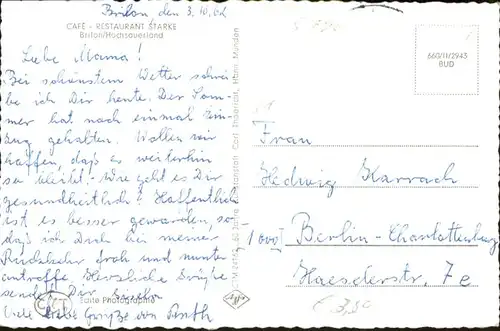 Brilon den 3.10.62
CAFÉ - RESTAURANT STARKE
Brilon/Hochsauerland
Liebe Mama!
Bei schönstem Wetter schrei-
be ich Dir heute. Der Som-
mer hat noch einmal Ein-
zug gehalten. Wollen wir
hoffen, daß es weiterhin
so bleibt. Wie geht es Dir
gesundheitlich? Hoffentlich
ist es besser geworden, so
daß ich Dich bei meiner
Rückkehr froh und munter
antreffe. Herzliche Grüße
sendet Dir
Viele liebe Grüße von
CTK
Echte Photographie
Cramers Kunstanstalt
660/11/2945
BUD
Frau
Hedwig Karrach
1000 Berlin-Charlottenburg
Haeselerstr. 7e